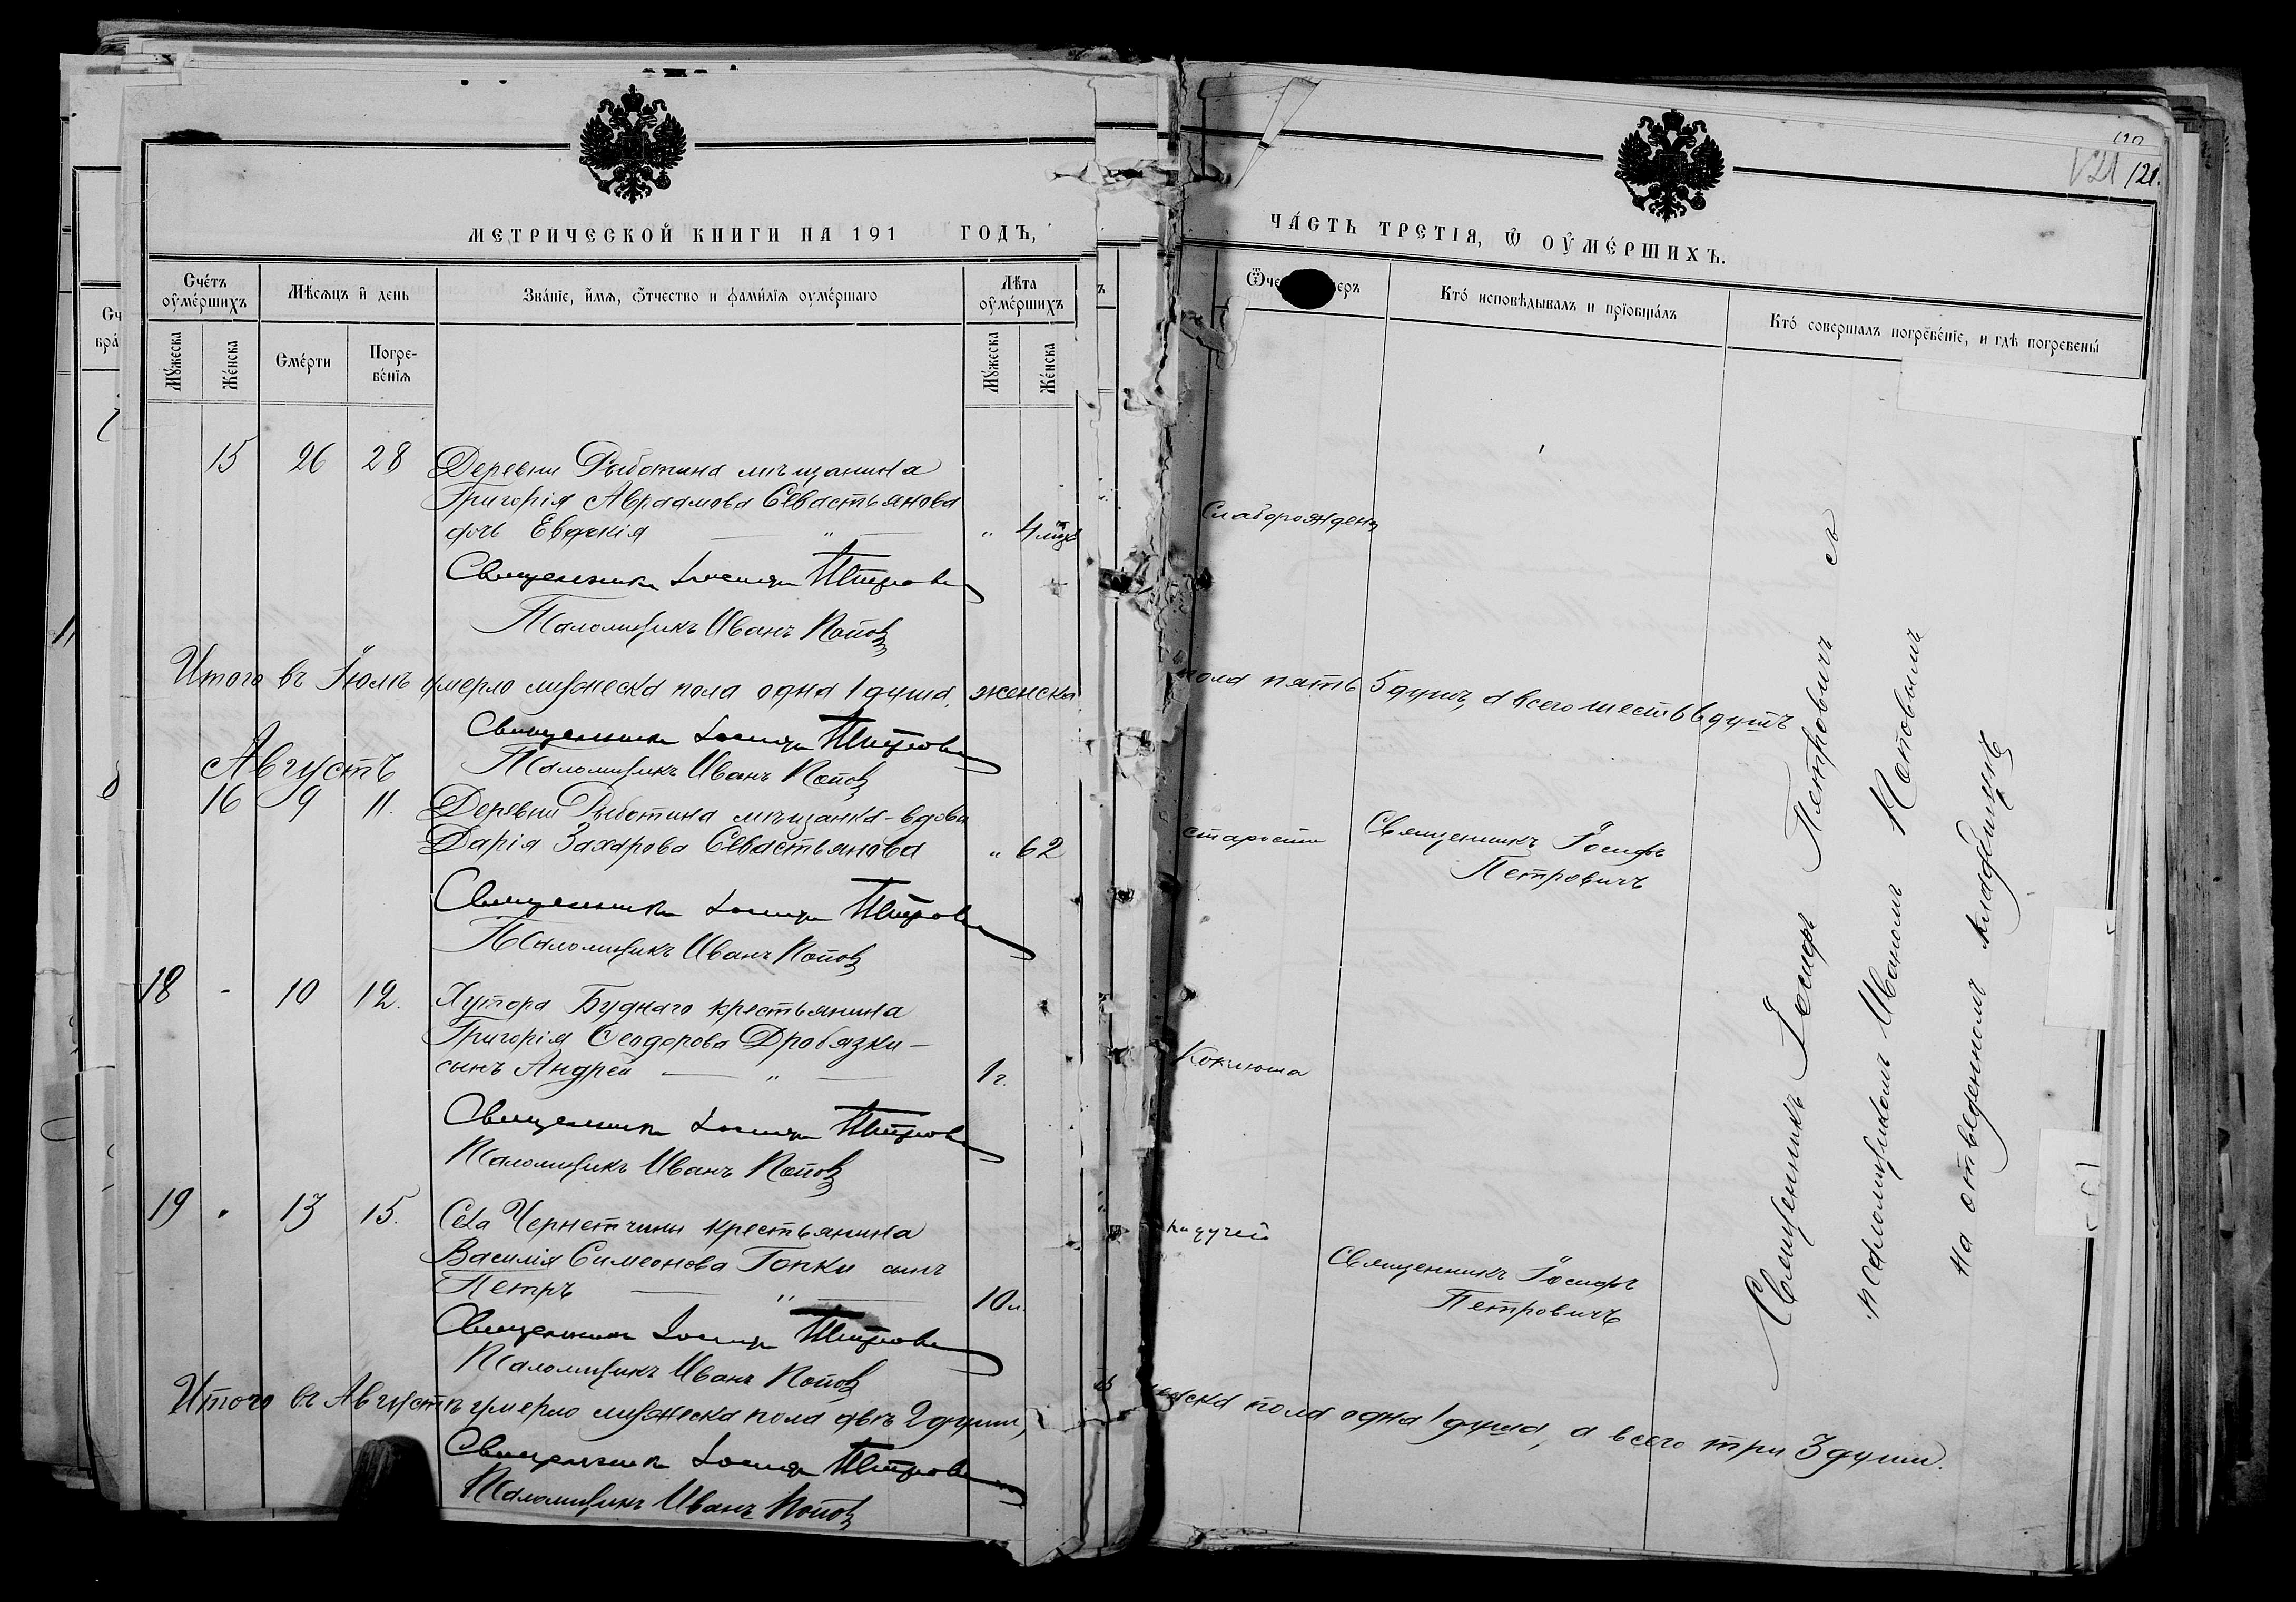 МЕТРИЧЕСКОЙ КНИГИ НА 191 ГОДЪ,
Счетъ оумершихъ
Мѣсяцъ и день
Званіе, имя, отчество и фамилія оумершаго
Лѣта оумершихъ
Мужеска
Женска
Смерти
Погребенія
Мужеска
Женска
15 26 28 Деревни Рыботина мѣщанина
Григорія Авраамова Севастьянова
дочь Евдокія — " — " 4 мѣс
Священникъ Іосифъ Петрович
Псаломщикъ Иванъ Попов
Итого въ Іюлѣ умерло мужеска пола одна 1 душа, женска
Священникъ Іосифъ Петрович
Августъ
Псаломщикъ Иванъ Попов
16 9 11. Деревни Рыботина мѣщанка-вдова
Дарія Захарова Севастьянова " 62
Священникъ Іосифъ Петрович
Псаломщикъ Иванъ Попов
18 - 10 12. Хутора Буднаго крестьянина
Григорія Ѳеодорова Дробязки –
сынъ Андрей — " — 1 г.
Священникъ Іосифъ Петрович
Псаломщикъ Иванъ Попов
19 " 13 15. Села Чернетчины крестьянина
Василія Симеонова Гопки сынъ
Петръ — " — 10 л.
Священникъ Іосифъ Петрович
Псаломщикъ Иванъ Попов
Итого въ Августѣ умерло мужеска пола двѣ 2 души,
Священникъ Іосифъ Петрович
Псаломщикъ Иванъ Попов
121.
ЧАСТЬ ТРЕТІЯ, Ѿ ОУМЕРШИХЪ.
Кто исповѣдывалъ и пріобщалъ
Кто совершалъ погребеніе, и гдѣ погребены
Слаборождена
пола пять 5 душъ, а всего шесть 6 душъ
старости Священникъ Іосифъ
Петровичъ
Коклюша
падучей
Священникъ Іосифъ
Петровичъ
ска пола одна 1 душа, а всего три 3 души.
Священникъ Іосифъ Петровичъ съ
псаломщикомъ Иваномъ Поповымъ
на отведенномъ кладбищѣ